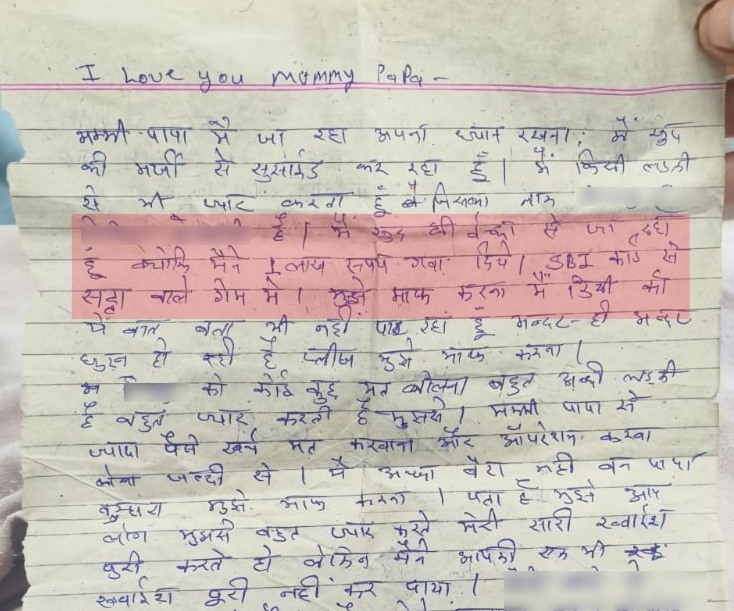 I Love you mummy PaPa -
मम्मी पापा मैं जा रहा अपना ध्यान रखना, मैं खुद
की मर्जी से सुसाईड कर रहा हूँ । मैं किसी लड़की
से भी प्यार करता हूँ जिसका नाम
है । मैं खुद की ईच्छा से जा रहा
हूँ क्योकि मैने 1 लाख रूपये गवा दिये । SBI कार्ड से
सट्टा वाले गेम मे । मुझे माफ करना मैं किसी को
ये बात बता भी नही पा रहा हूँ अन्दर-ही अन्दर
घुटन हो रही है प्लीज मुझे माफ करना ।
को कोई कुछ मत बोलना बहुत अच्छी लड़की
है बहुत प्यार करती है मुझसे । मम्मी पापा से
ज्यादा पैसे खर्च मत करवाना और ऑपरेशन करवा
लेना जल्दी से । मैं अच्छा बेटा नही बन पाया
तुम्हारा मुझे माफ करना । पता है मुझे आप
लोग मुझसे बहुत प्यार करते मेरी सारी ख्वाईश
पुरी करते हो लेकिन मैने आपकी एक भी
ख्वाईश पूरी नहीं कर पाया ।